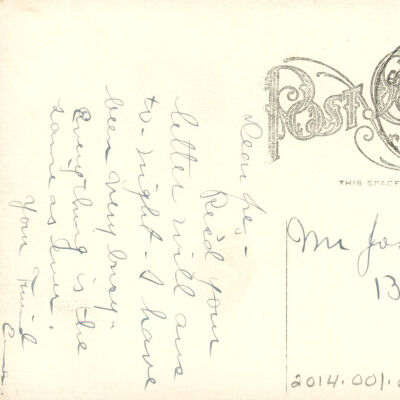 Dear Jes -
Rec'd your
letter will ans
to-night - I have
been very busy -
Everything is the
same as ever.
Your Friend
POST
THIS SPACE
Mr Jos
B
2014.001.